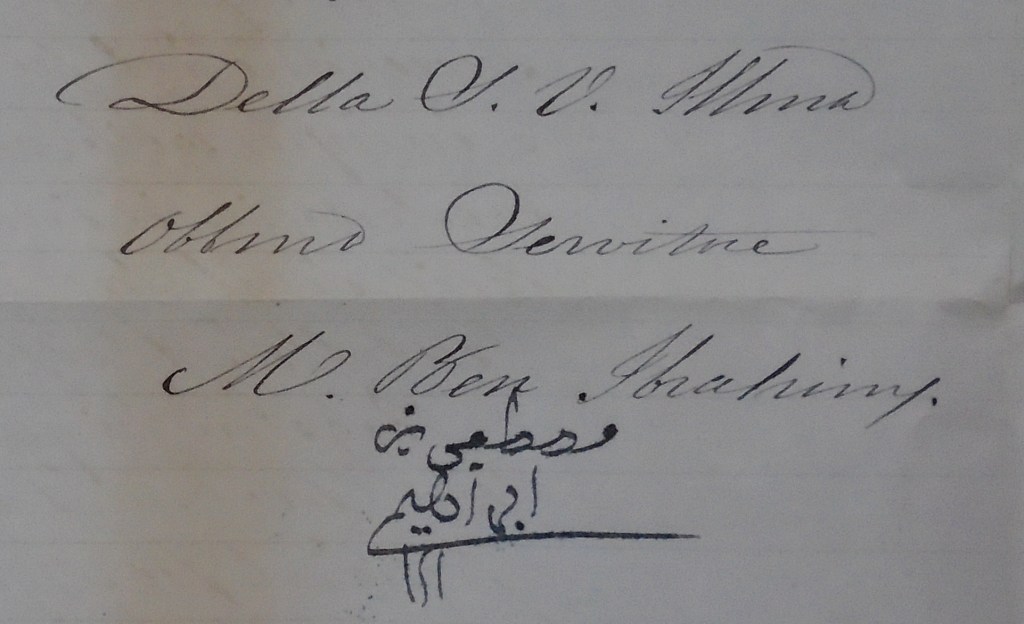 Della S. V. Illma
Obbmo Servitore
M. Ben Ibrahim.
مصطفى بن